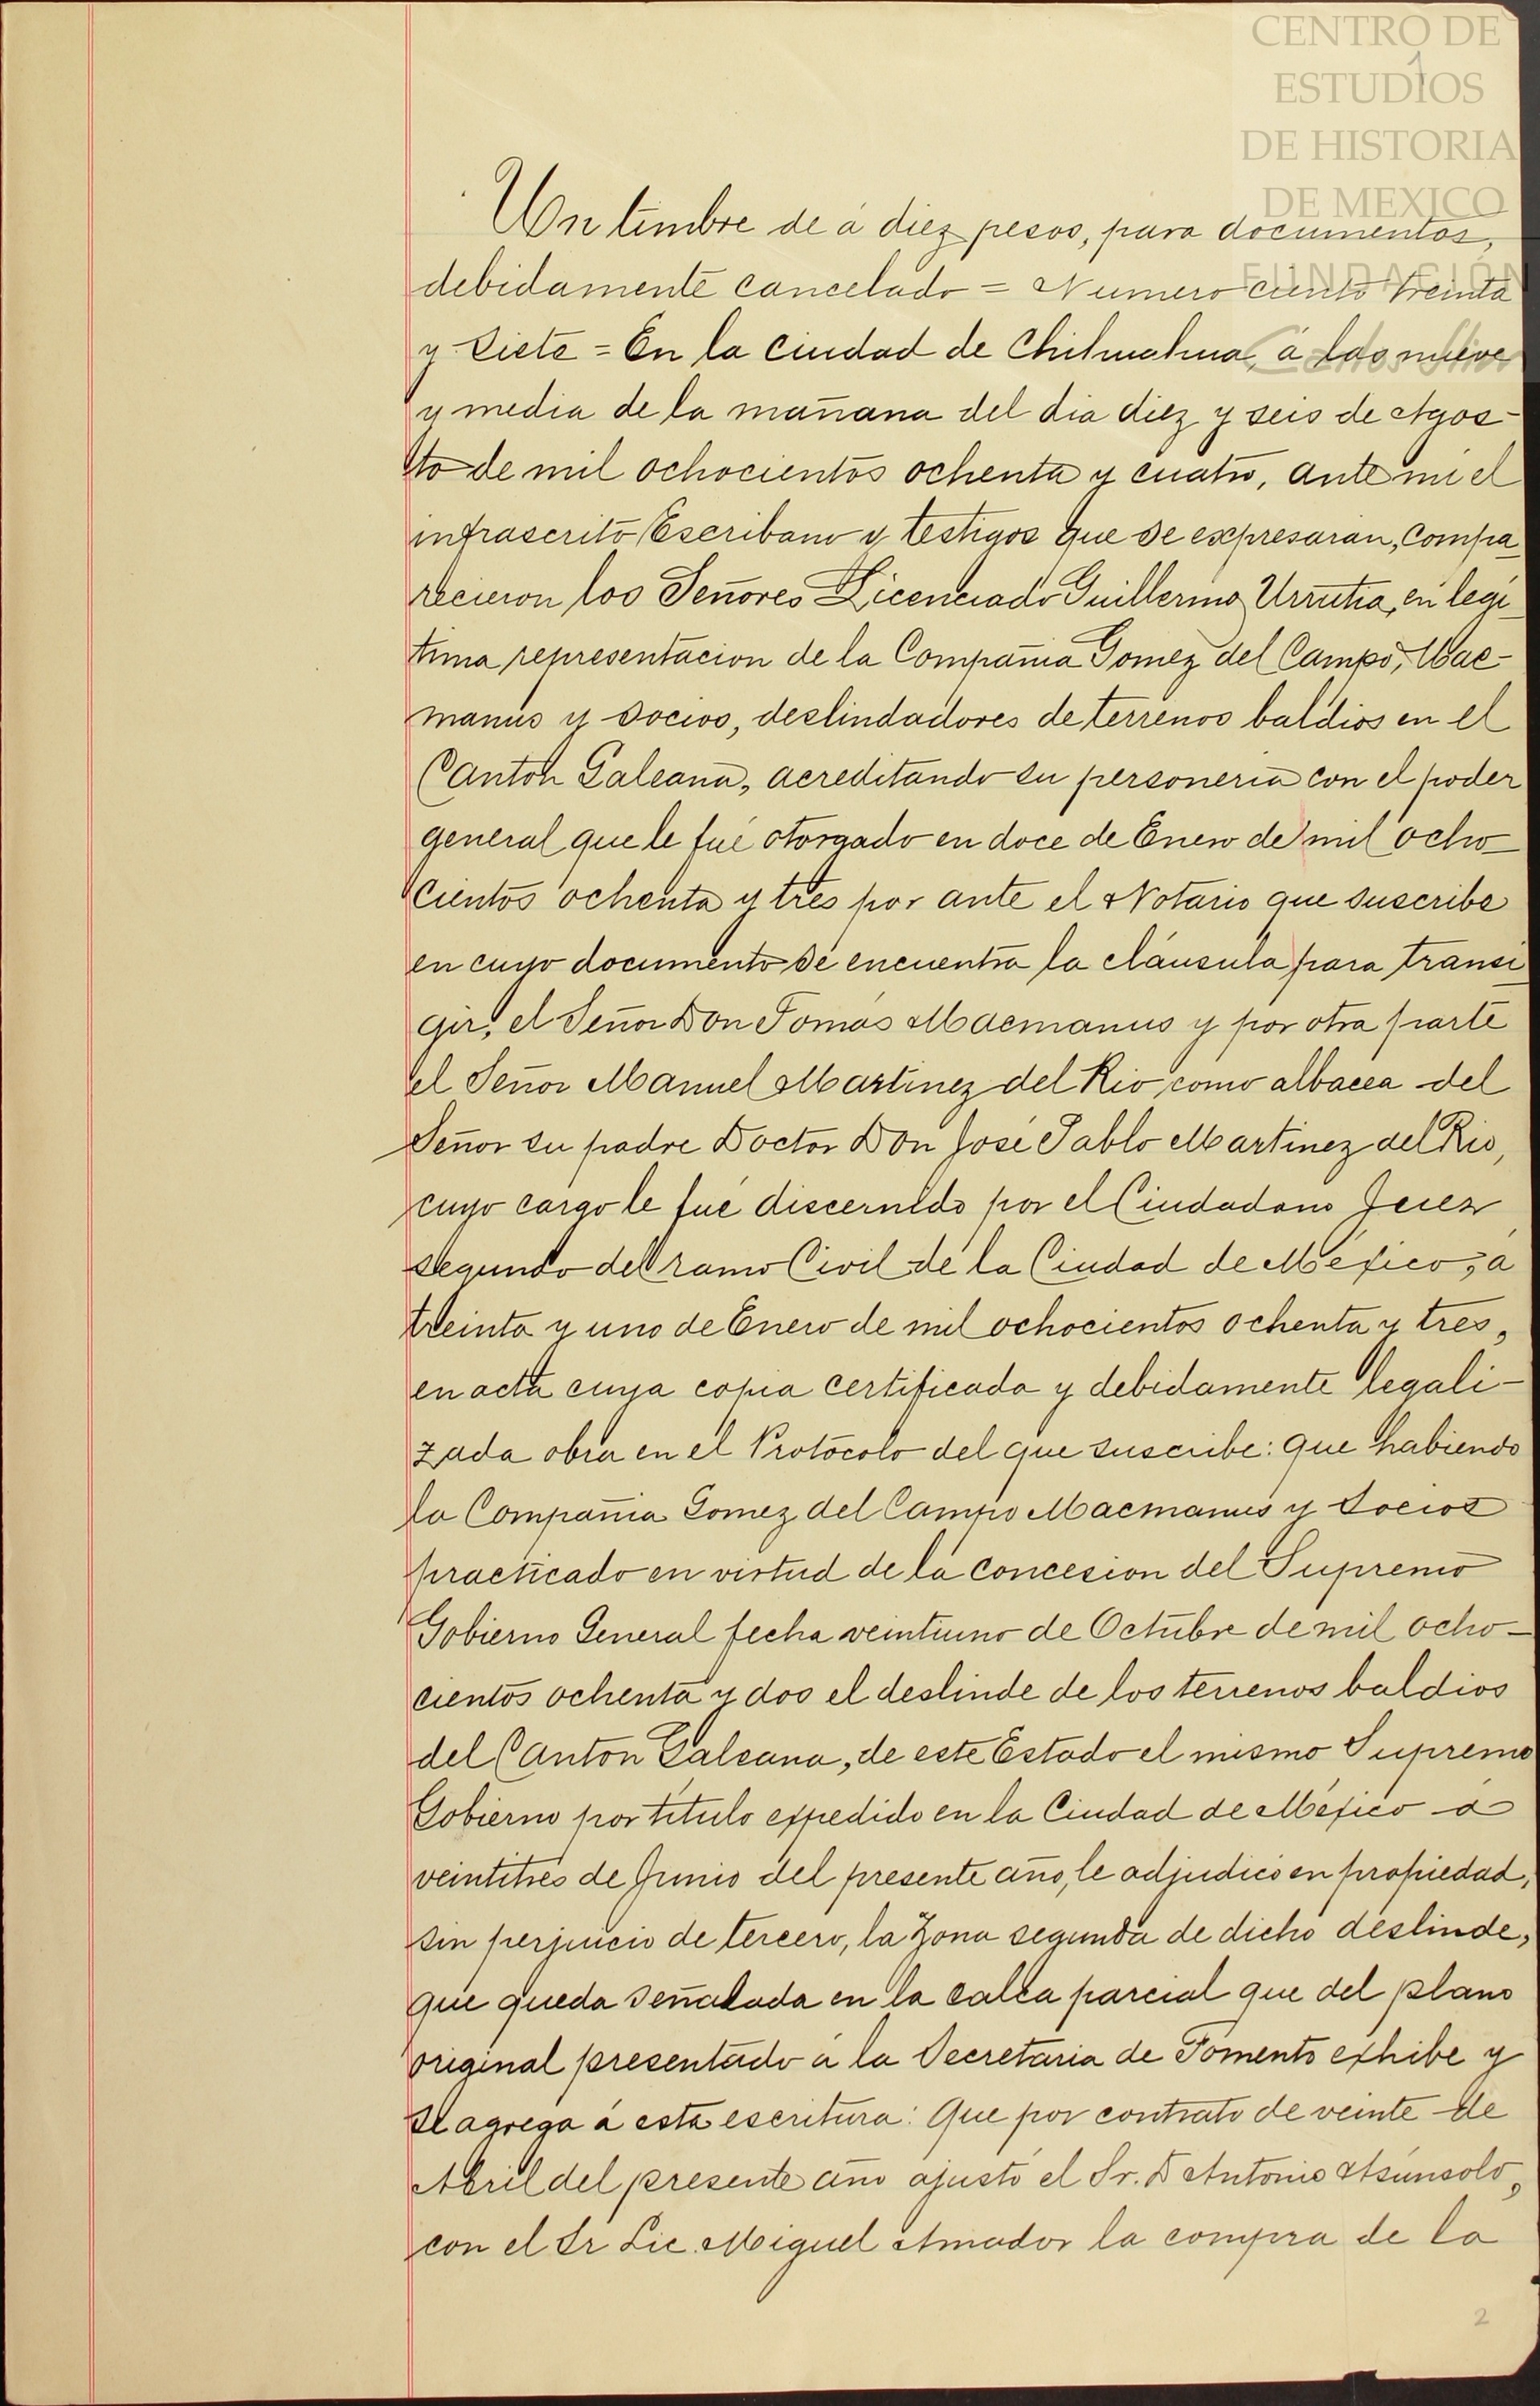 CENTRO DE
ESTUDIOS
DE HISTORIA
DE MEXICO
FUNDACIÓN
Carlos Slim
1
Un timbre de á diez pesos, para documentos,
debidamente cancelado = Numero ciento treinta
y siete = En la ciudad de Chihuahua, á las nueve
y media de la mañana del dia diez y seis de Agos-
to de mil ochocientos ochenta y cuatro, ante mi el
infrascrito Escribano y testigos que se expresarán, compa
recieron los Señores Licenciado Guillermo Urrutia, en legi
tima representacion de la Compañia Gomez del Campo, Mac-
manus y socios, deslindadores de terrenos baldios en el
Canton Galeana, acreditando su personeria con el poder
general que le fué otorgado en doce de Enero de mil ocho-
cientos ochenta y tres por ante el Notario que suscribe
en cuyo documento se encuentra la cláusula para transi
gir, el Señor Don Tomás Macmanus y por otra parte
el Señor Manuel Martinez del Rio, como albacea del
Señor su padre Doctor Don José Pablo Martinez del Rio,
cuyo cargo le fué discernido por el Ciudadano Juez
segundo del ramo Civil de la Ciudad de México, á
treinta y uno de Enero de mil ochocientos ochenta y tres,
en acta cuya copia certificada y debidamente legali-
zada obra en el Protocolo del que suscribe: que habiendo
la Compañia Gomez del Campo Macmanus y Socios
practicado en virtud de la concesion del Supremo
Gobierno General fecha veintiuno de Octubre de mil ocho-
cientos ochenta y dos el deslinde de los terrenos baldios
del Canton Galeana, de este Estado el mismo Supremo
Gobierno por título expedido en la Ciudad de México á
veintitres de Junio del presente año, le adjudicó en propiedad,
sin perjuicio de tercero, la Zona segunda de dicho deslinde,
que queda señalada en la calca parcial que del plano
original presentado á la Secretaria de Fomento exhibe y
se agrega á esta escritura: Que por contrato de veinte de
Abril del presente año ajustó el Sr. D Antonio Asúnsolo,
con el Sr Lic. Miguel Amador la compra de la
2